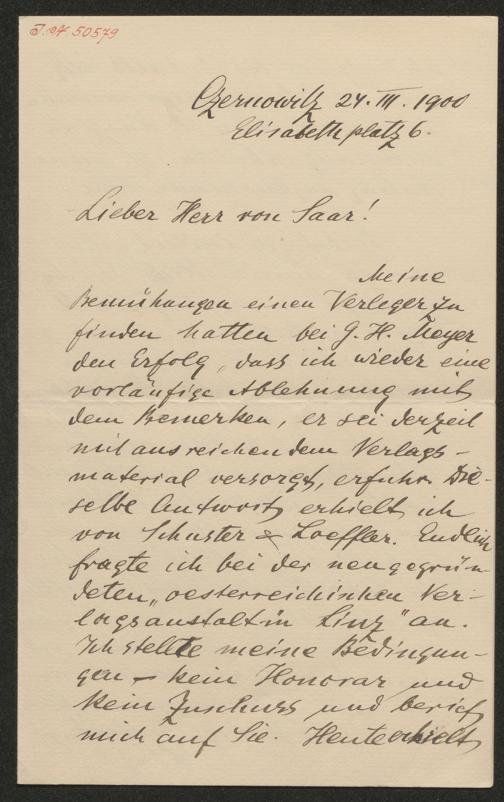 I. N. 50579
Czernowitz 24. III. 1900
Elisabethplatz 6.
Lieber Herr von Saar!
Meine
Bemühungen einen Verleger zu
finden hatten bei G. H. Meyer
den Erfolg, dass ich wieder eine
vorläufige Ablehnung mit
dem Bemerken, er sei derzeit
mit ausreichendem Verlags-
material versorgt, erfuhr. Die-
selbe Antwort erhielt ich
von Schuster & Loeffler. Endlich
fragte ich bei der neugegrün-
deten „oesterreichischen Ver-
lagsanstalt in Linz" an.
Ich stellte meine Bedingun-
gen – kein Honorar und
kein Zuschuss und berief
mich auf Sie. Heute erhielt